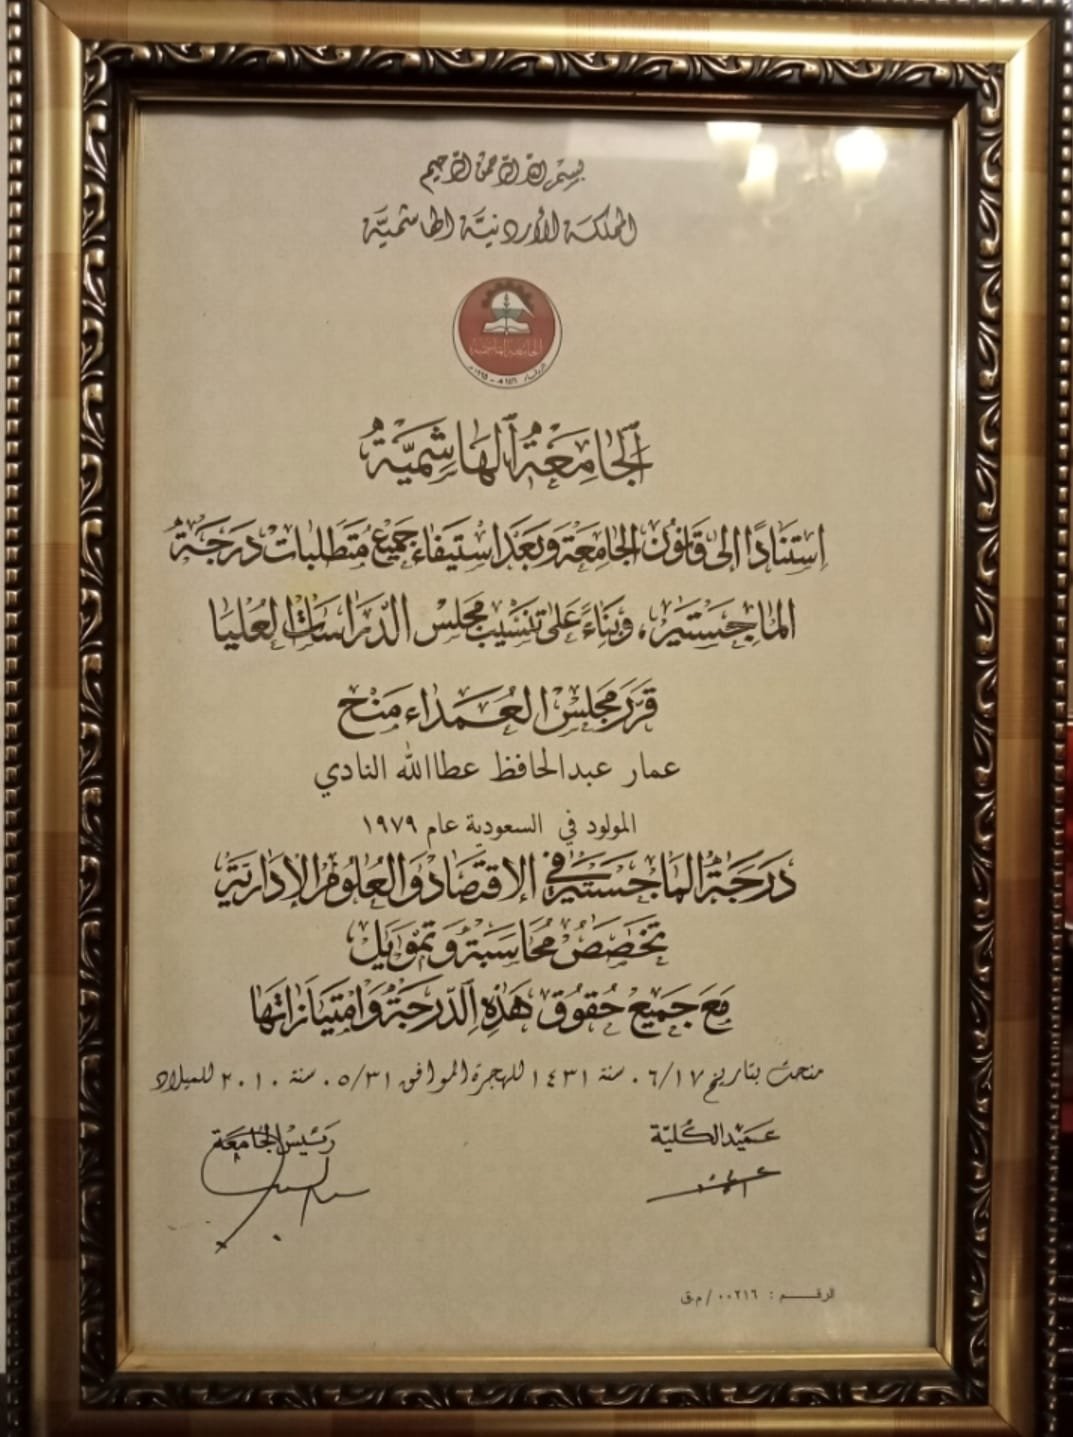 بسم الله الرحمن الرحيم
المملكة الأردنية الهاشمية
الجامعة الهاشمية
الجَامِعَةُ الهَاشِمِيَّةُ
اِستنادًا الى قانون الجامعة وبعد استيفاء جميع متطلبات درجة
الماجستير، وبناءً على تنسيب مجلس الدراسات العليا
قرر مجلس العمداء منح
عمار عبدالحافظ عطاالله النادي
المولود في السعودية عام ١٩٧٩
درجة الماجستير في الاقتصاد والعلوم الإدارية
تخصص محاسبة وتمويل
مع جميع حقوق هذه الدرجة وامتيازاتها
منحت بتاريخ ٠٦/١٧ سنة ١٤٣١ للهجرة الموافق ٠٥/٣١ سنة ٢٠١٠ للميلاد
عميد الكلية
رئيس الجامعة
الرقم : ٠٠٢١٦ / م.ق